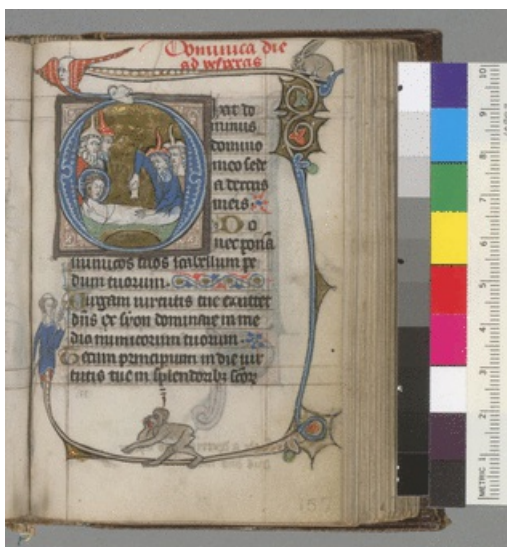 Dominica die
ad vesperas
ixit do
minus
domino
meo sede
a dextris
meis
Do
nec ponā
inimicos tuos scabellum pe
dum tuorum
Uirgam uirtutis tue emittet
dn̄s ex syon dominare in me
dio inimicorum tuorum
Tecum principium in die uir
tutis tue in splendoribꝫ scōꝝ
157
10
9
8
7
6
5
4
3
2
1
METRIC